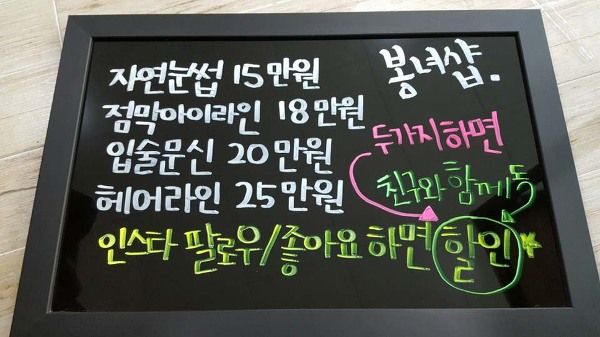 봉녀샵.
자연눈썹 15만원
점막아이라인 18만원
입술문신 20만원
헤어라인 25만원
두가지하면
친구와 함께도
인스타 팔로우/좋아요 하면 할인